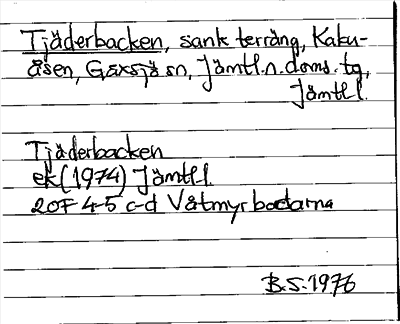 Tjäderbacken, sank terräng, Kaku-
åsen, Gåxsjö sn, Jämtl.n.doms.tg,
Jämtl l.
Tjäderbacken
ek (1974) Jämtl l.
20F 4-5 c-d Våtmyrbodarna
B.S. 1976